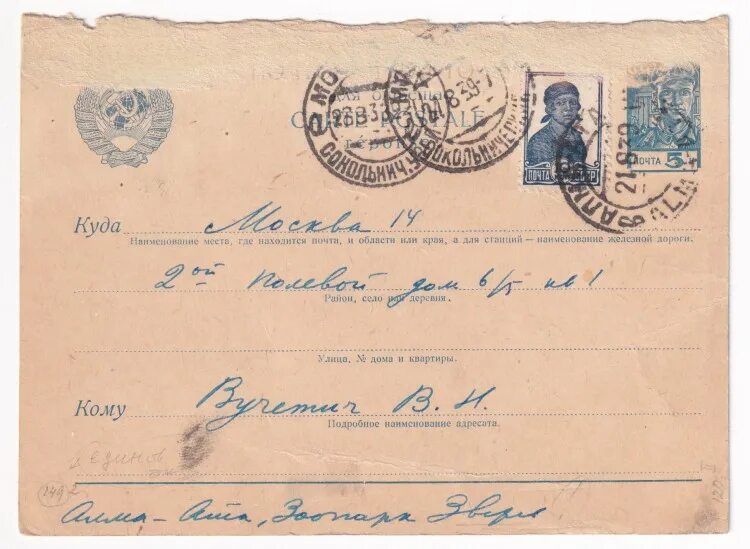 CARTE POSTALE
МОСКВА
СОКОЛЬНИЧ.
СОКОЛЬНИЧЕСКИЙ
ПОЧТА СССР
ПОЧТА 5
АЛМА-АТА
21 8 39
ALMA-ATA
Куда Москва 14
Наименование места, где находится почта, и области или края, а для станций — наименование железной дороги.
2ой Полевой дом 6/5 кв 1
Район, село или деревня.
Улица, № дома и квартиры.
Кому Вучетич В. Н.
Подробное наименование адресата.
249
Алма-Ата, Зоопарк Звери